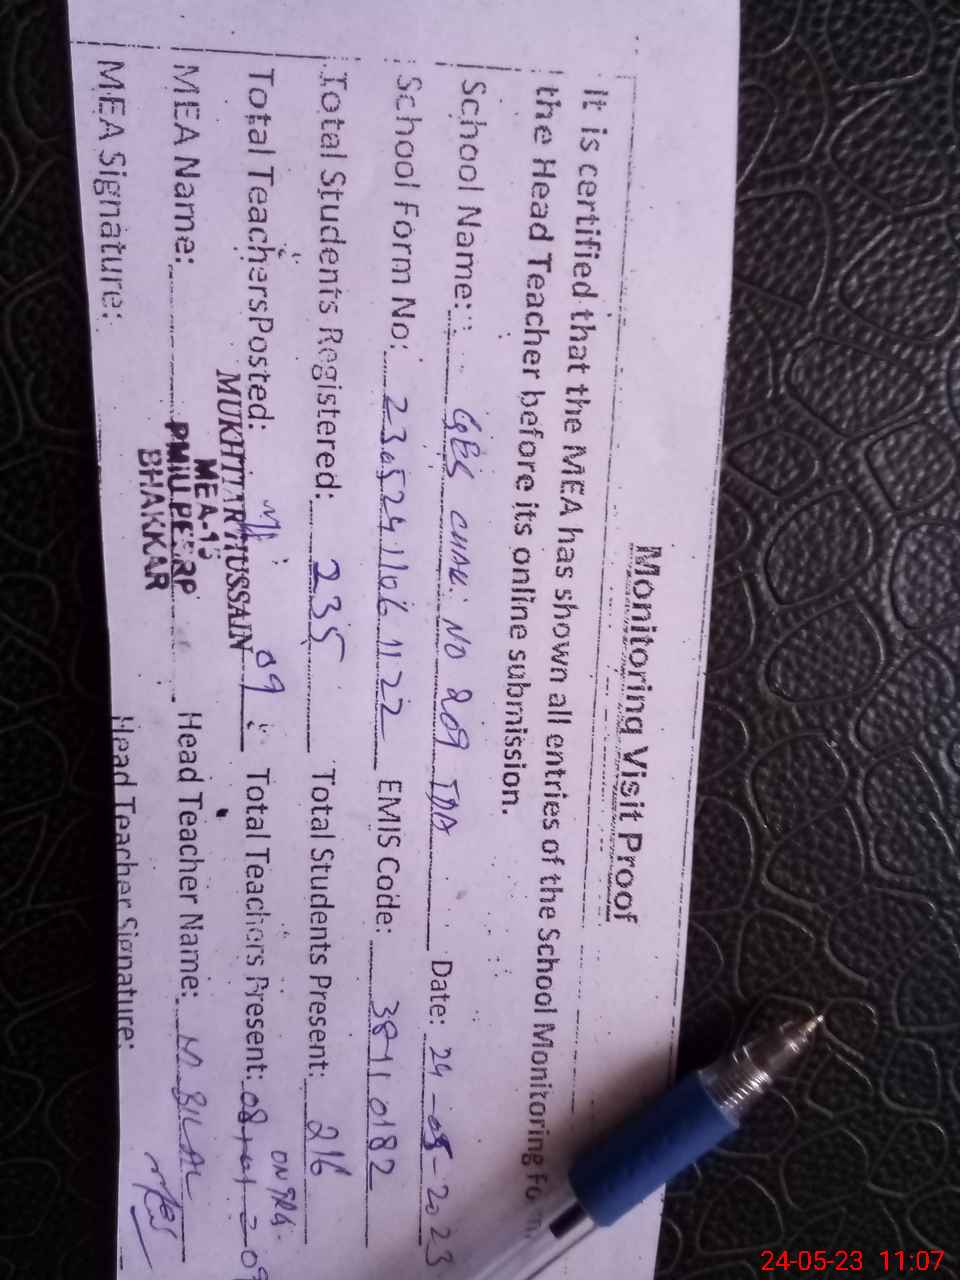 Monitoring Visit Proof
It is certified that the MEA has shown all entries of the School Monitoring Form
the Head Teacher before its online submission.
School Name: GES CHAK NO 209 TDA Date: 24-05-2023
School Form No: 230524110611 22 EMIS Code: 38110182
Total Students Registered: 235 Total Students Present: 216
Total Teachers Posted: 09 Total Teachers Present: 08+01=09
MEA Name: Head Teacher Name: M BILAL
MUKHTIAR HUSSAIN
MEA-15
PMIU.PESRP
BHAKKAR
MEA Signature: Head Teacher Signature:
24-05-23 11:07